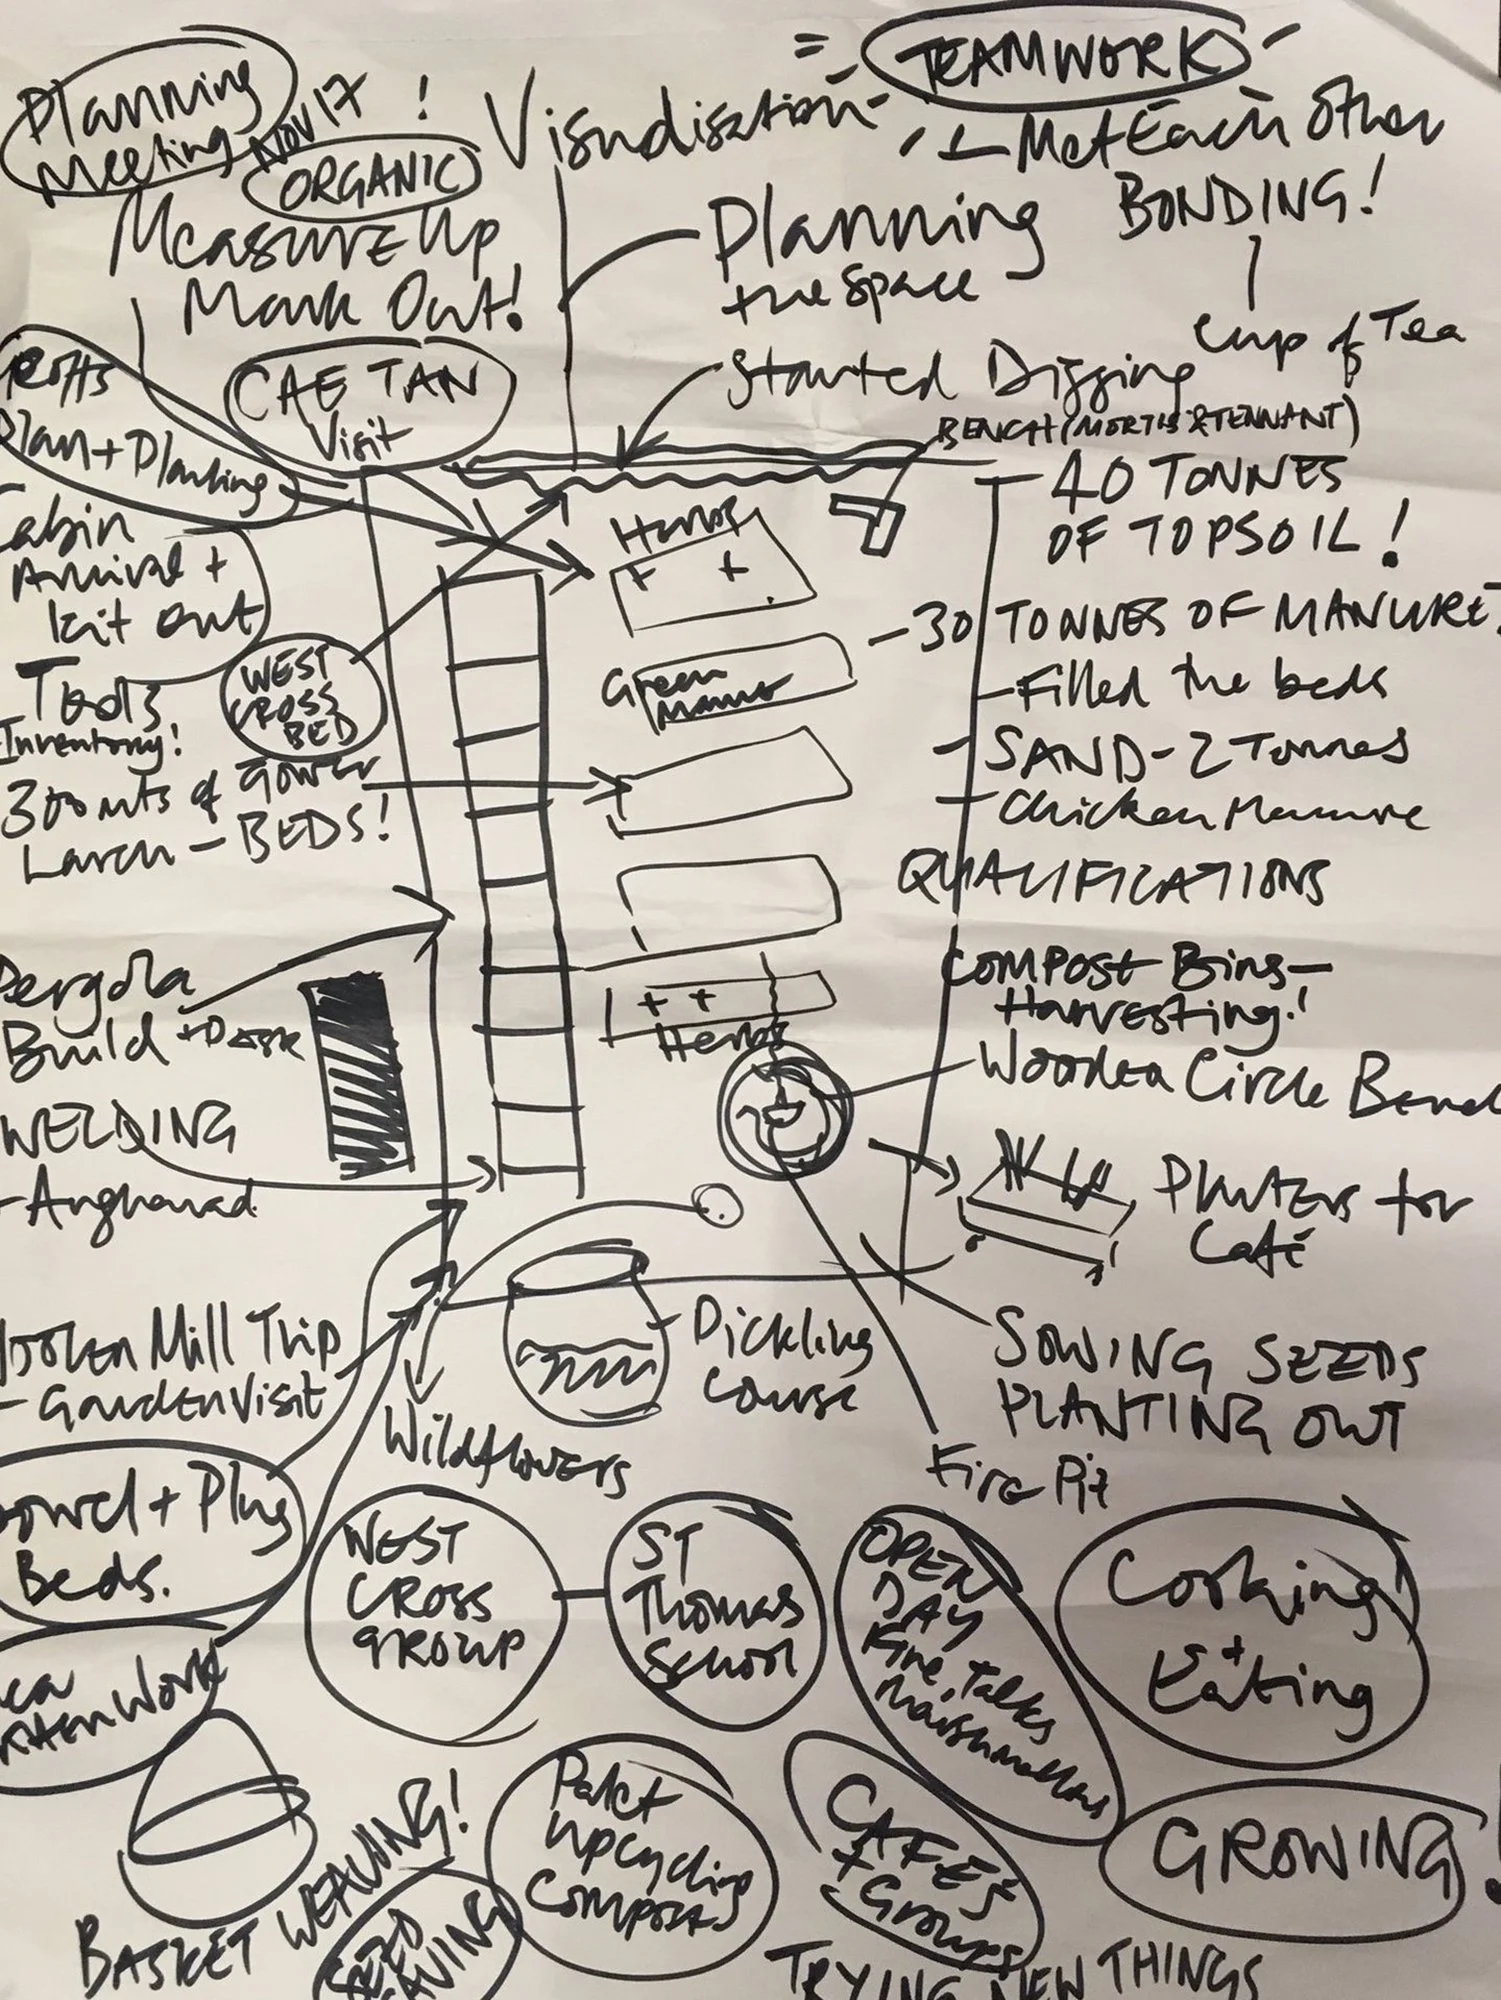 = TEAMWORK
Planning
Meeting NOV 17 !
Visudisation
Met Each Other
BONDING!
ORGANIC
Measure Up
Mark Out!
Planning
the space
Cup of Tea
Plan + Planting
CAE TAN
Visit
Started Digging
BENCH (MORTIS & TENNANT)
40 TONNES
OF TOPSOIL!
Cabin
Arrival +
kit out
Herbs
30 TONNES OF MANURE
Filled the beds
WEST
CROSS
BED
Green
Manure
Tools
Inventory!
SAND - 2 Tonnes
Chicken Manure
300 mts of Gower
Larch - BEDS!
QUALIFICATIONS
Pergola
Build + Desk
COMPOST Bins -
Harvesting!
Herbs
Wooden Circle Bench
WELDING
- Angharad
Planters for
Café
Woolen Mill Trip
- Garden Visit
Pickling
Course
SOWING SEEDS
PLANTING OUT
Wildflowers
Fire Pit
+ Plug
Beds.
WEST
CROSS
GROUP
ST
Thomas
School
OPEN
DAY
Fire, talks
Marshmallows
Cooking
+
Eating
Work
BASKET WEAVING!
SEED
SAVING
Palet
Upcycling
Compost
CAFES
+ Groups
GROWING!
TRYING NEW THINGS